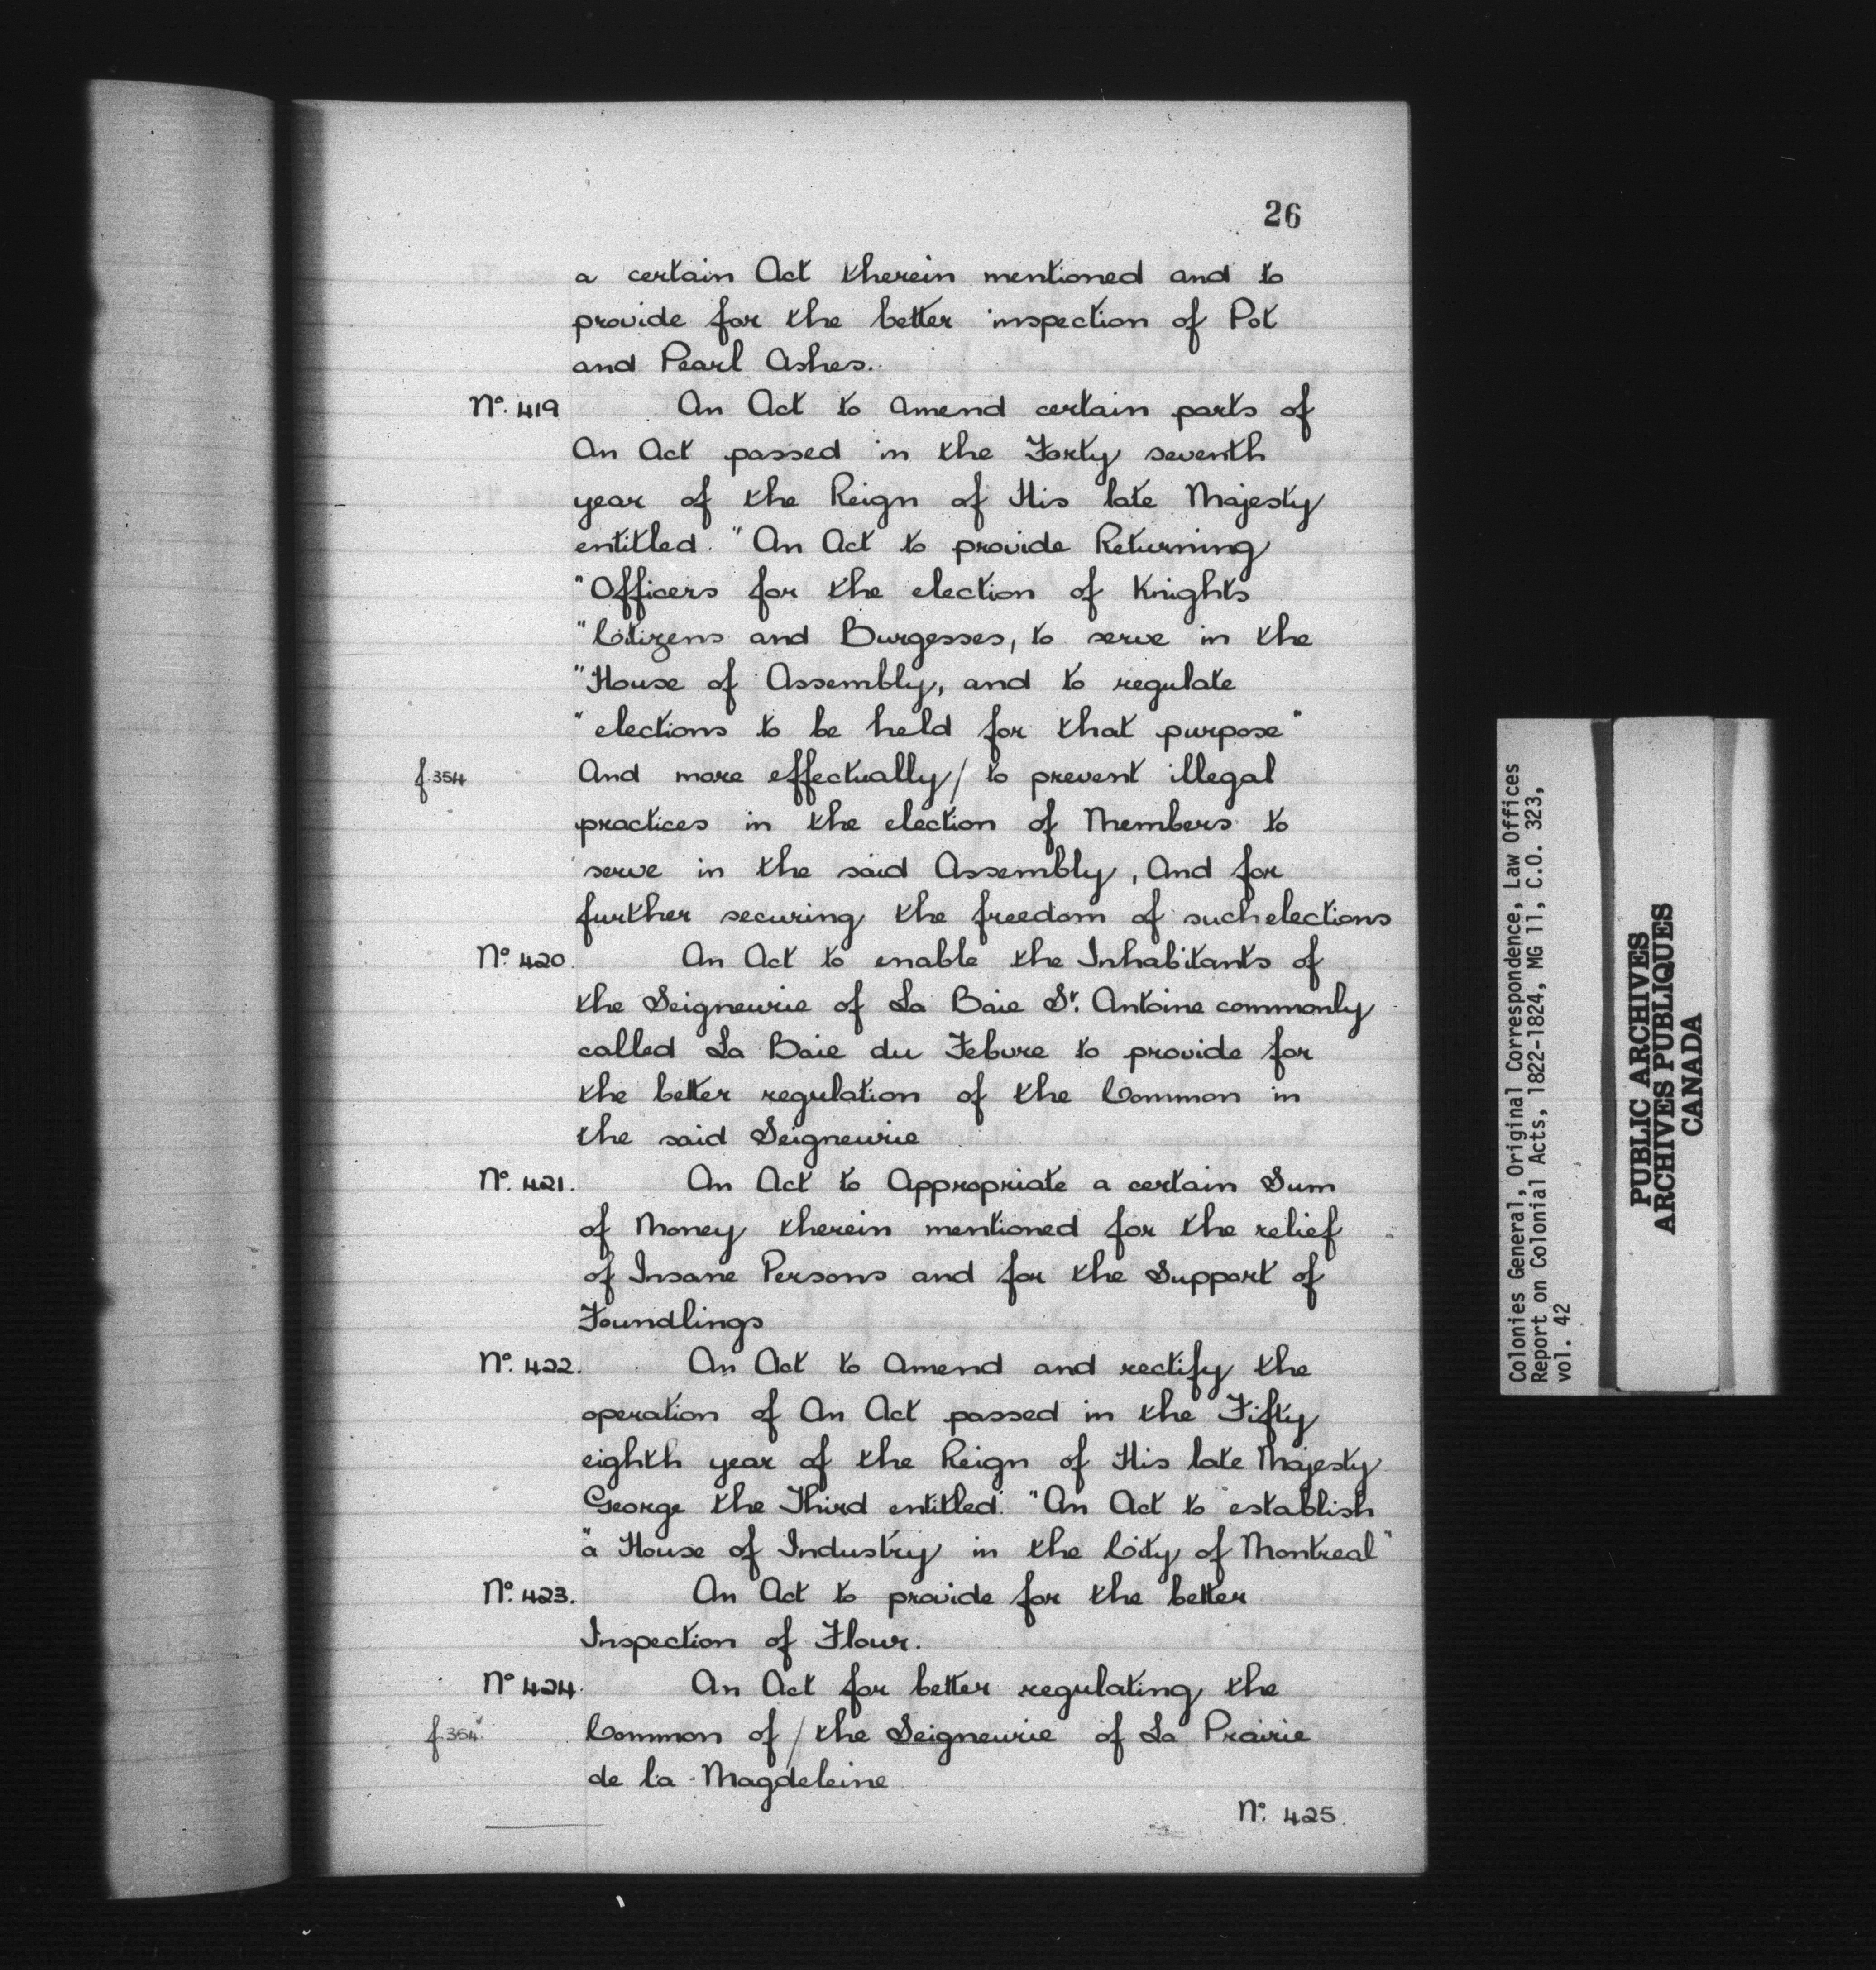 26
a certain Act therein mentioned and to
provide for the better inspection of Pot
and Pearl Ashes.
No. 419 An Act to amend certain parts of
An Act passed in the Forty seventh
year of the Reign of His late Majesty
entitled. "An Act to provide Returning
"Officers for the election of Knights
"Citizens and Burgesses, to serve in the
"House of Assembly, and to regulate
"elections to be held for that purpose"
f.354 And more effectually / to prevent illegal
practices in the election of Members to
serve in the said Assembly, And for
further securing the freedom of such elections
No. 420. An Act to enable the Inhabitants of
the Seigneurie of La Baie St. Antoine commonly
called La Baie du Febure to provide for
the better regulation of the Common in
the said Seigneurie
No. 421. An Act to Appropriate a certain Sum
of Money therein mentioned for the relief
of Insane Persons and for the Support of
Foundlings
No. 422. An Act to Amend and rectify the
operation of An Act passed in the Fifty
eighth year of the Reign of His late Majesty
George the Third entitled. "An Act to establish
"a House of Industry in the City of Montreal"
No. 423. An Act to provide for the better
Inspection of Flour.
No. 424. An Act for better regulating the
f.354v Common of / the Seigneurie of La Prairie
de la Magdeleine
No. 425.
Colonies General, Original Correspondence, Law Offices
Report on Colonial Acts, 1822-1824, MG 11, C.O. 323,
vol. 42
PUBLIC ARCHIVES
ARCHIVES PUBLIQUES
CANADA